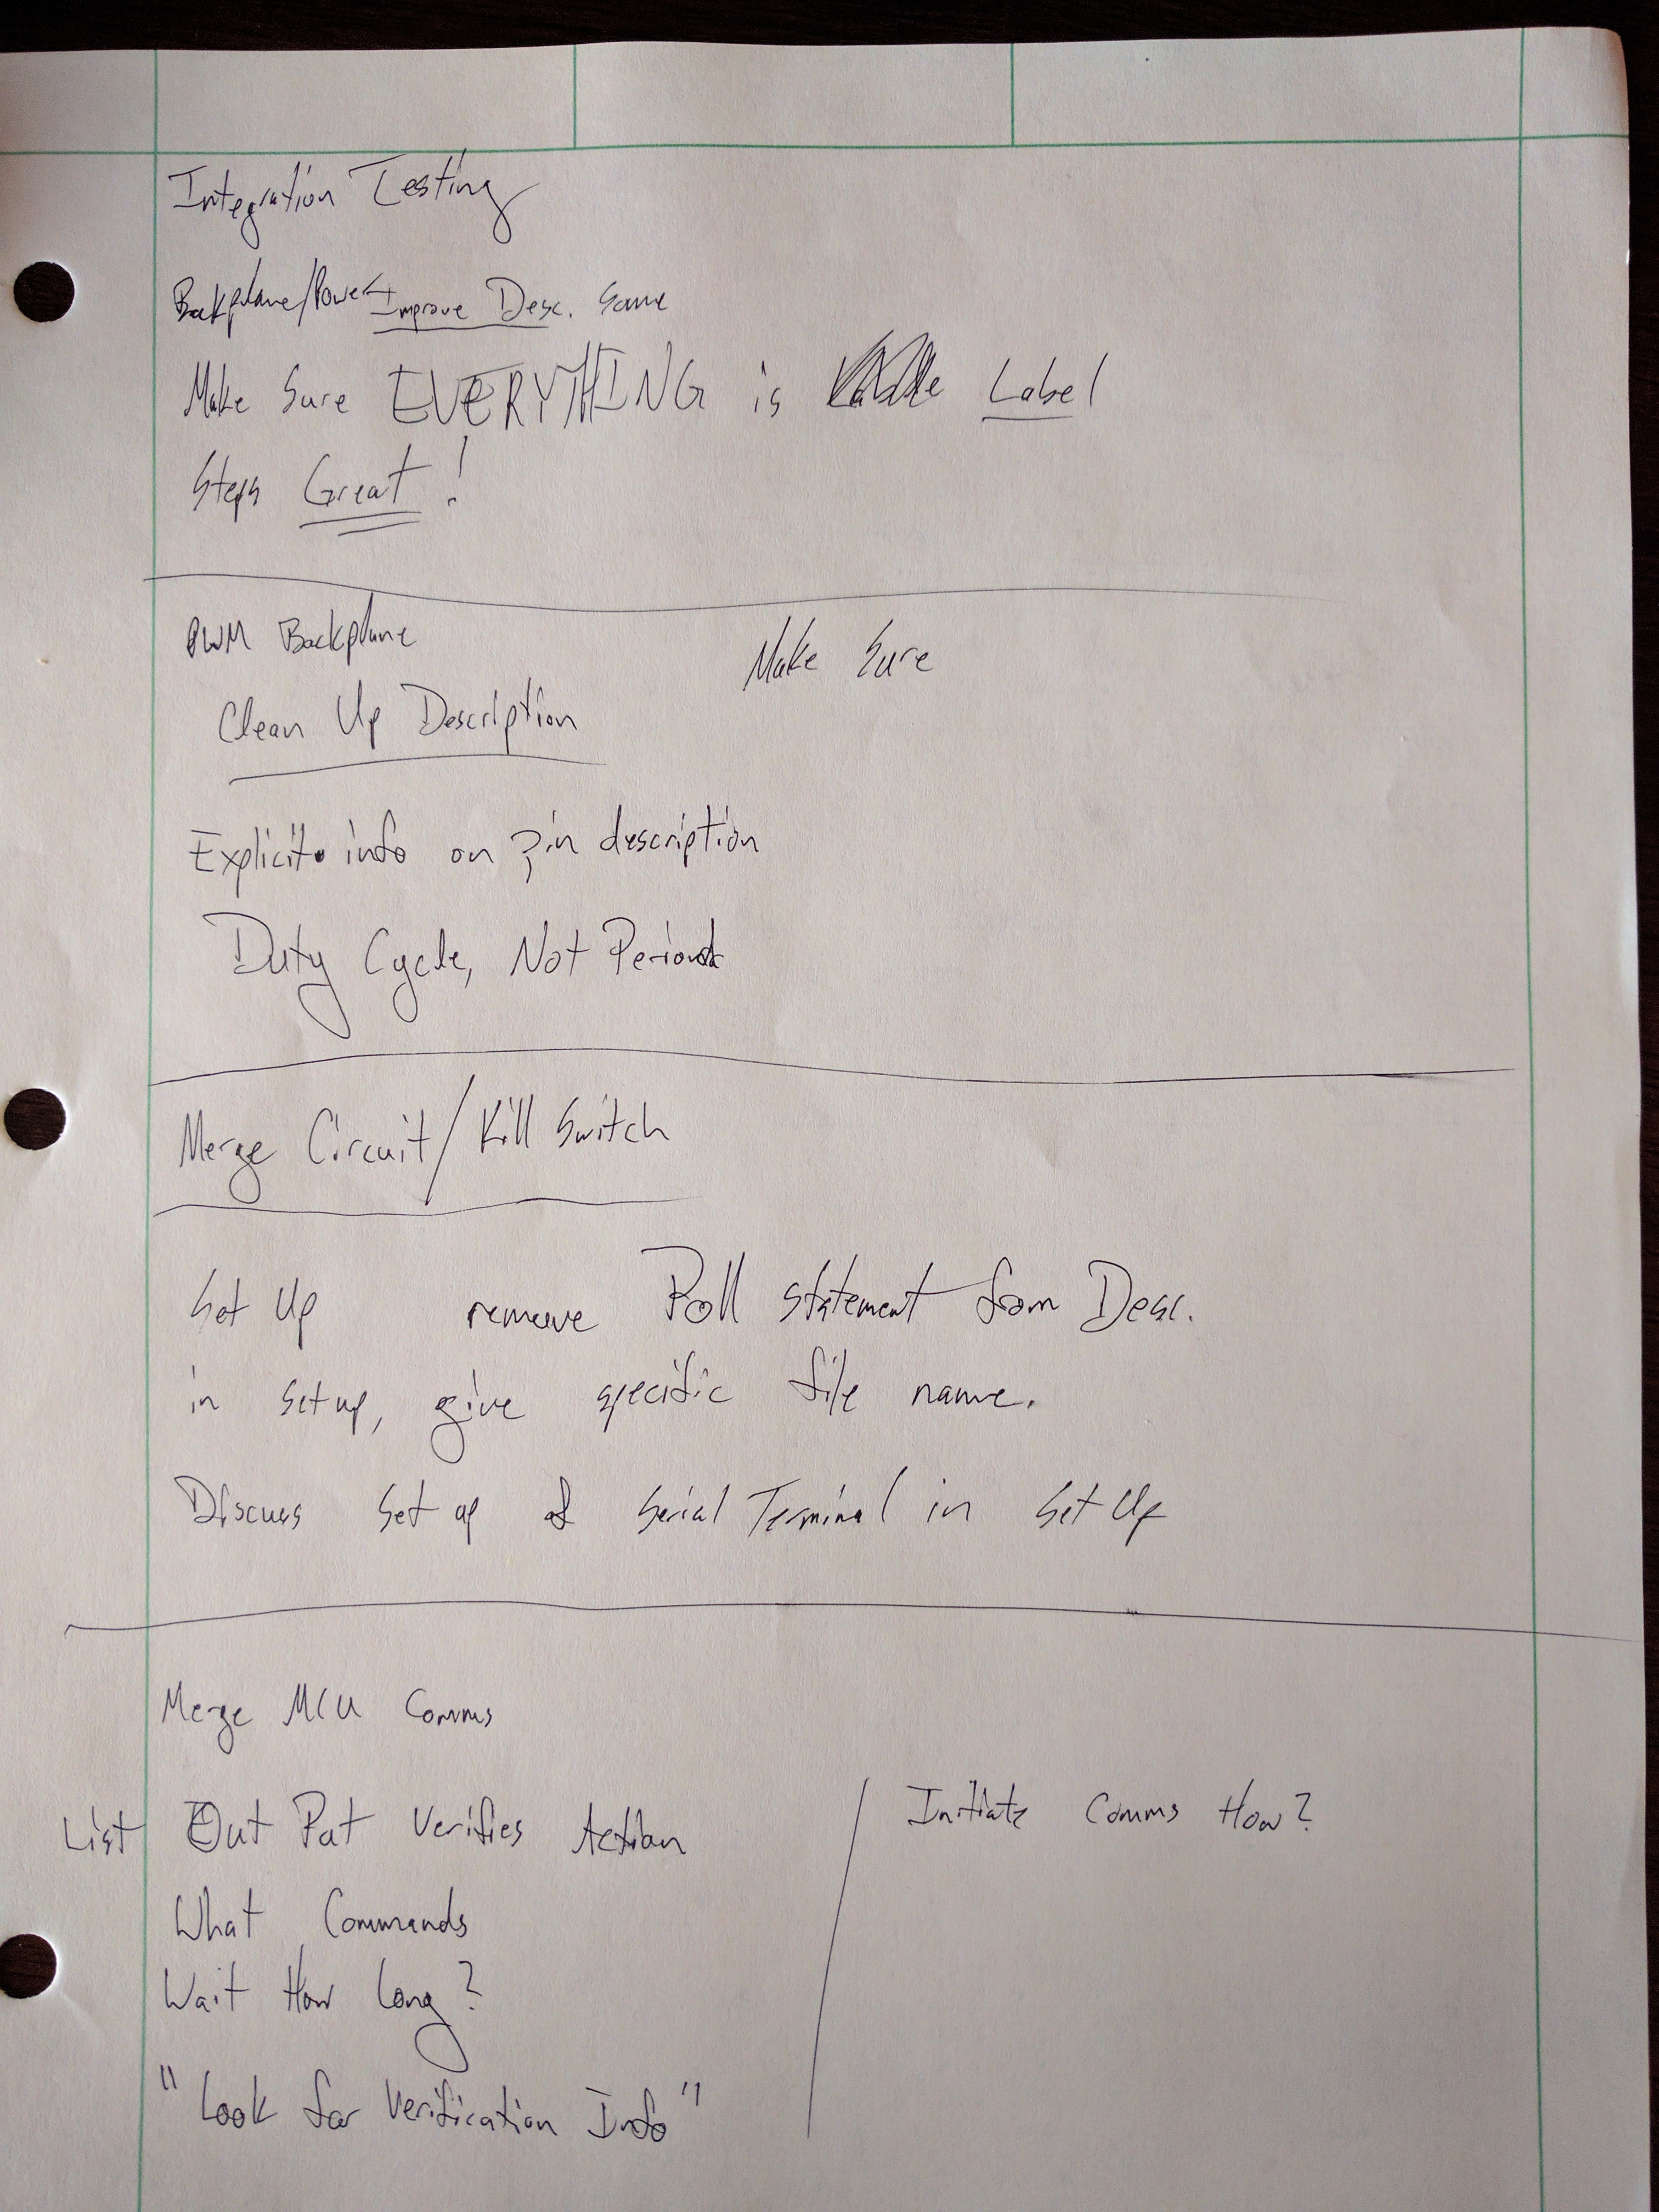 Integration Testing
Backplane/Power Improve Desc. Some
Make Sure EVERYTHING is Label
Steps Great!
PWM Backplane
Make Sure
Clean Up Description
Explicit info on Pin description
Duty Cycle, Not Period
Merge Circuit/Kill Switch
Set Up remove Poll statement from Desc.
in setup, give specific file name.
Discuss Set up of Serial Terminal in Set Up
Merge MCU Comms
List Out Put Verifies Action
Initiate Comms How?
What Commands
Wait How Long?
"Look for Verification Info"